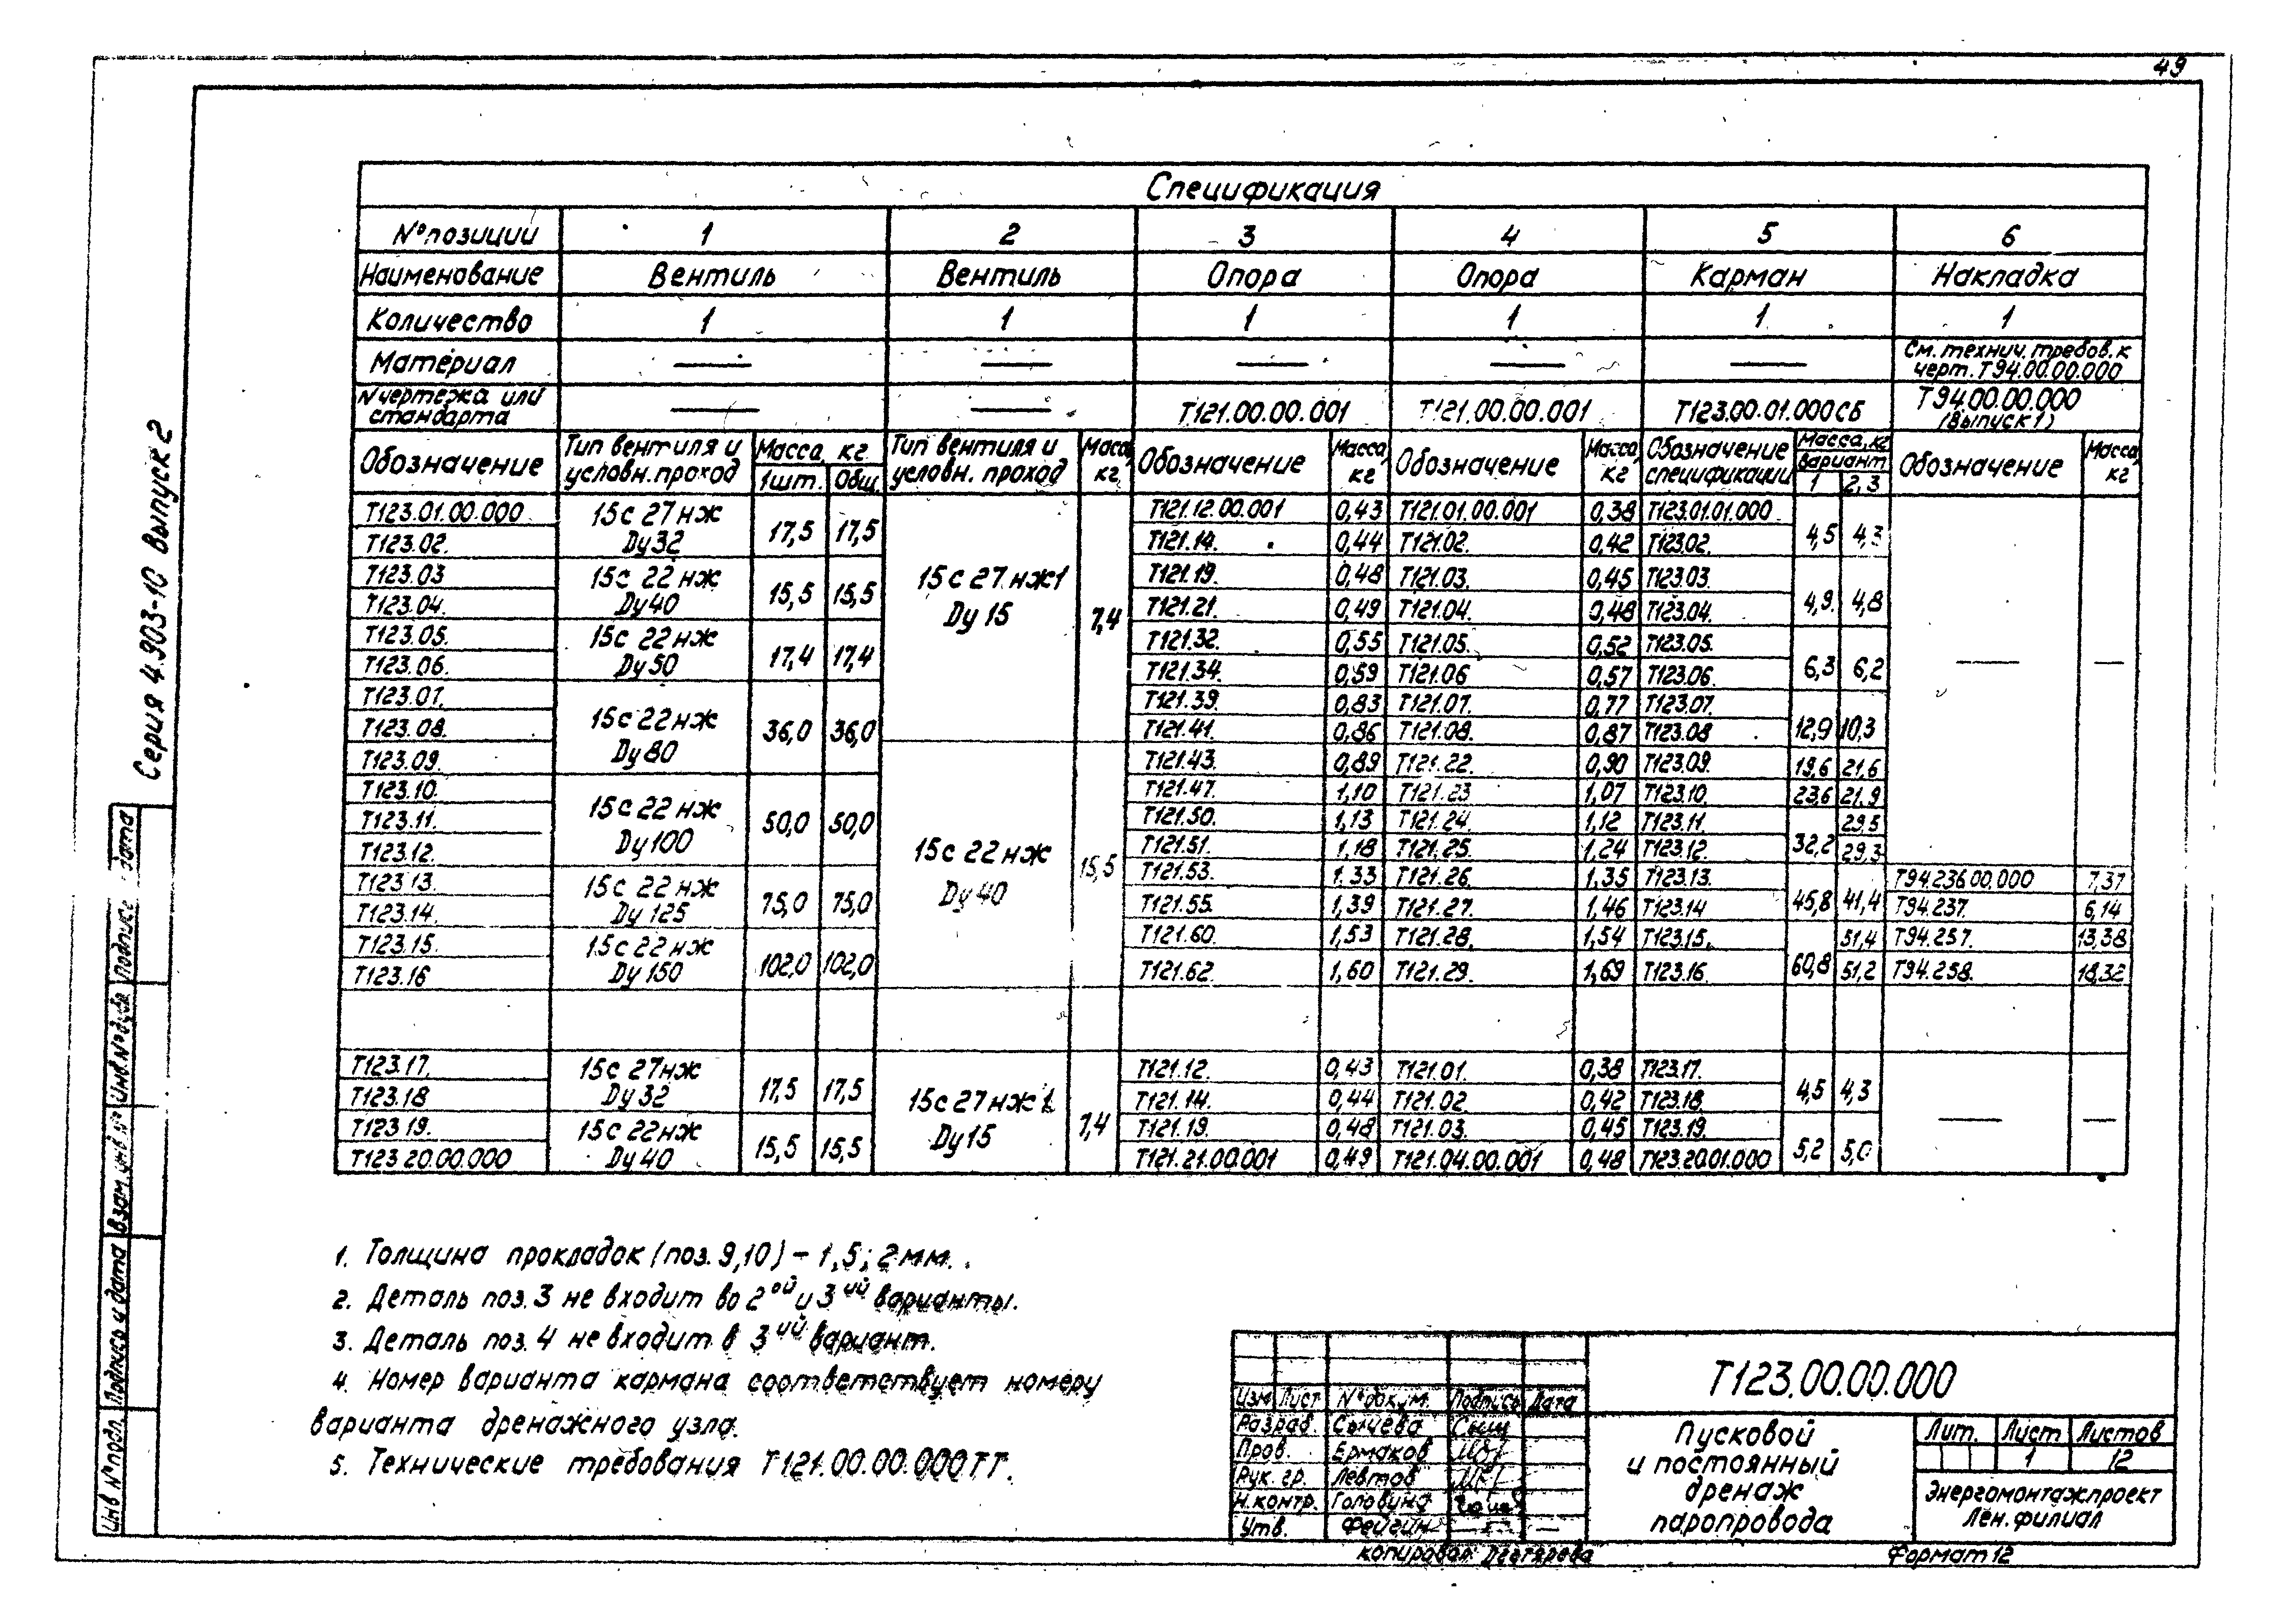 49
Серия 4.903-10 Выпуск 2
Спецификация
№ позиции 1 2 3 4 5 6
Наименование Вентиль Вентиль Опора Опора Карман Накладка
Количество 1 1 1 1 1 1
Материал — — — — — См. технич. требов. к черт. Т94.00.00.000
N чертежа или стандарта — — Т121.00.00.001 Т121.00.00.001 Т123.00.01.000СБ Т94.00.00.000 (Выпуск 1)
Обозначение Тип вентиля и условн. проход Масса, кг. 1шт. Общ. Тип вентиля и условн. проход Масса, кг. Обозначение Масса, кг Обозначение Масса, кг Обозначение спецификации Масса, кг вариант 1 2,3 Обозначение Масса, кг
Т123.01.00.000 15с 27нж Ду32 17,5 17,5 15с 27нж1 Ду 15 7,4 Т121.12.00.001 0,43 Т121.01.00.001 0,38 Т123.01.01.000 4,5 4,3 — —
Т123.02. Т121.14. 0,44 Т121.02. 0,42 Т123.02.
Т123.03 15с 22нж Ду40 15,5 15,5 Т121.19. 0,48 Т121.03. 0,45 Т123.03. 4,9. 4,8
Т123.04. Т121.21. 0,49 Т121.04. 0,48 Т123.04.
Т123.05. 15с 22нж Ду50 17,4 17,4 Т121.32. 0,55 Т121.05. 0,52 Т123.05. 6,3 6,2
Т123.06. Т121.34. 0,59 Т121.06 0,57 Т123.06.
Т123.07. 15с 22нж Ду80 36,0 36,0 Т121.39. 0,83 Т121.07. 0,77 Т123.07. 12,9 10,3
Т123.08. Т121.41. 0,86 Т121.08. 0,87 Т123.08
Т123.09. 15с 22нж Ду40 15,5 Т121.43. 0,89 Т121.22. 0,90 Т123.09. 19,6 21,6
Т123.10. 15с 22нж Ду100 50,0 50,0 Т121.47. 1,10 Т121.23 1,07 Т123.10. 23,6 21,9
Т123.11. Т121.50. 1,13 Т121.24. 1,12 Т123.11. 32,2 29,5
Т123.12. Т121.51. 1,18 Т121.25. 1,24 Т123.12. 29,3
Т123.13. 15с 22нж Ду 125 75,0 75,0 Т121.53. 1.33 Т121.26. 1,35 Т123.13. 45,8 41,4 Т94.236.00.000 7,37
Т123.14. Т121.55. 1,39 Т121.27. 1,46 Т123.14 Т94.237. 6,14
Т123.15. 15с 22нж Ду 150 102,0 102,0 Т121.60. 1,53 Т121.28. 1,54 Т123.15. 60,8 51,4 Т94.257. 13,38
Т123.16 Т121.62. 1,60 Т121.29. 1,69 Т123.16. 51,2 Т94.258. 18,32
Т123.17. 15с 27нж Ду 32 17,5 17,5 15с 27нж1 Ду15 7,4 Т121.12. 0,43 Т121.01. 0,38 Т123.17. 4,5 4,3 — —
Т123.18 Т121.14. 0,44 Т121.02 0,42 Т123.18.
Т123.19. 15с 22нж Ду 40 15,5 15,5 Т121.19. 0,48 Т121.03. 0,45 Т123.19. 5,2 5,0
Т123.20.00.000 Т121.21.00.001 0,49 Т121.04.00.001 0,48 Т123.20.01.000
1. Толщина прокладок (поз. 9,10) – 1,5; 2мм.
2. Деталь поз. 3 не входит во 2ой и 3ий варианты.
3. Деталь поз. 4 не входит в 3ий вариант.
4. Номер варианта кармана соответствует номеру
варианта дренажного узла.
5. Технические требования Т121.00.00.000ТТ.
Изм Лист № докум. Подпись Дата
Разраб. Сычева Сыч
Пров. Ермаков
Рук. гр. Левтов
Н.контр. Головина
Утв. Фейгин — —
Т123.00.00.000
Пусковой
и постоянный
дренаж
паропровода
Лит. Лист Листов
1 12
Энергомонтажпроект
Лен. филиал
Копировал: Дегтярева
Формат 12
Инв № подл. Подпись и дата Взам. инв № Инв № дубл. Подпись и дата